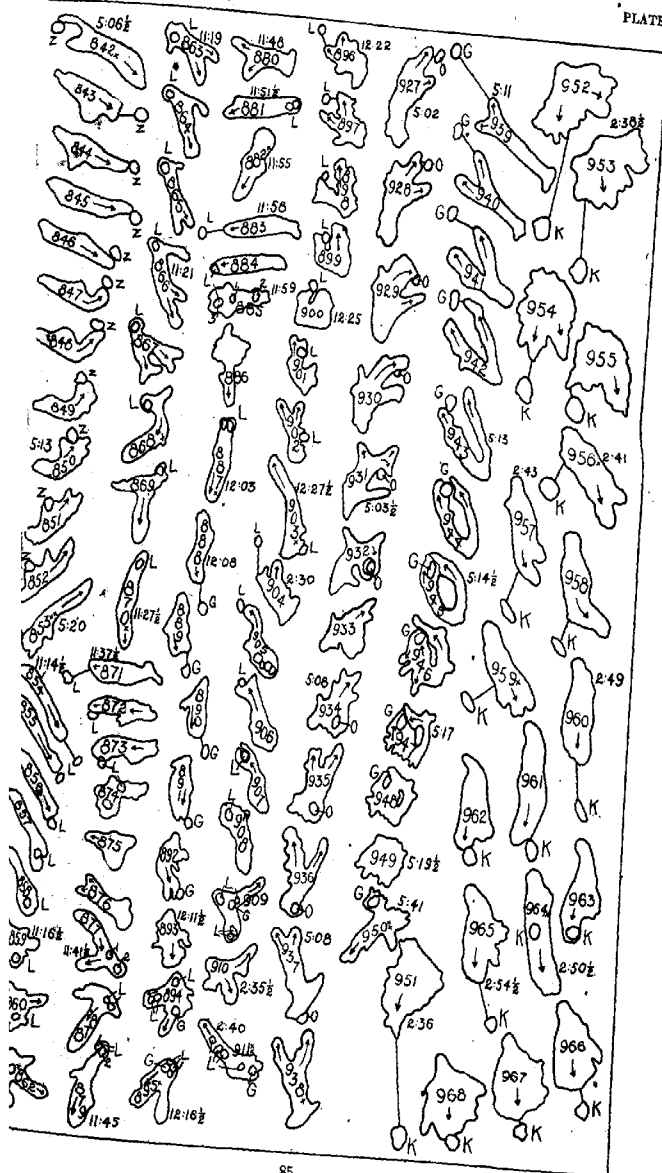 PLATE
5:06½
842x
Z
843
Z
844
Z
845
Z
846
Z
847
Z
848
Z
849
Z
5:13
850
Z
851
Z
852
Z
853x
5:20
11:14½
854
855
L
856
L
857
L
858
L
859
11:16½
L
860
L
862
L
11:19
863
L
L
L
11:21
866
L
867
L
868
L
869
L
870x
L
11:27½
11:37½
871
L
872
L
873
L
874
L
875
876
877
11:41½
L
879
11:45
11:48
880
11:51½
881
L
882x
11:55
11:58
883
L
884
L
L
Z
885
11:59
886
L
887
12:03
888
12:08
G
889
G
890
G
891
G
892
G
893
12:11½
894
L
G
G
L
895
12:16½
L
896
12:22
L
897
L
898
L
899
L
900
12:25
901
L
902
L
903x
12:27½
L
L
904
2:30
L
905
L
906
L
907
L
908
L
909
G
910
2:35½
2:40
911x
L
G
927
5:02
O
928
O
929
O
930
O
931
O
5:03½
932
O
933
5:08
934
O
935
O
936
O
5:08
937
O
938x
G
5:11
939
G
940
G
941
G
942
G
943
5:13
G
944
G
945
5:14½
G
946
G
947
5:17
G
948
949
5:19½
G
5:41
950x
951
2:36
K
952
K
2:38½
953
K
954
K
955
K
956x
2:41
K
2:43
957
K
958
K
959x
K
2:49
960
K
961
K
962
K
963
K
964
K
2:50½
965
2:54½
K
966
K
967
K
968
K
85